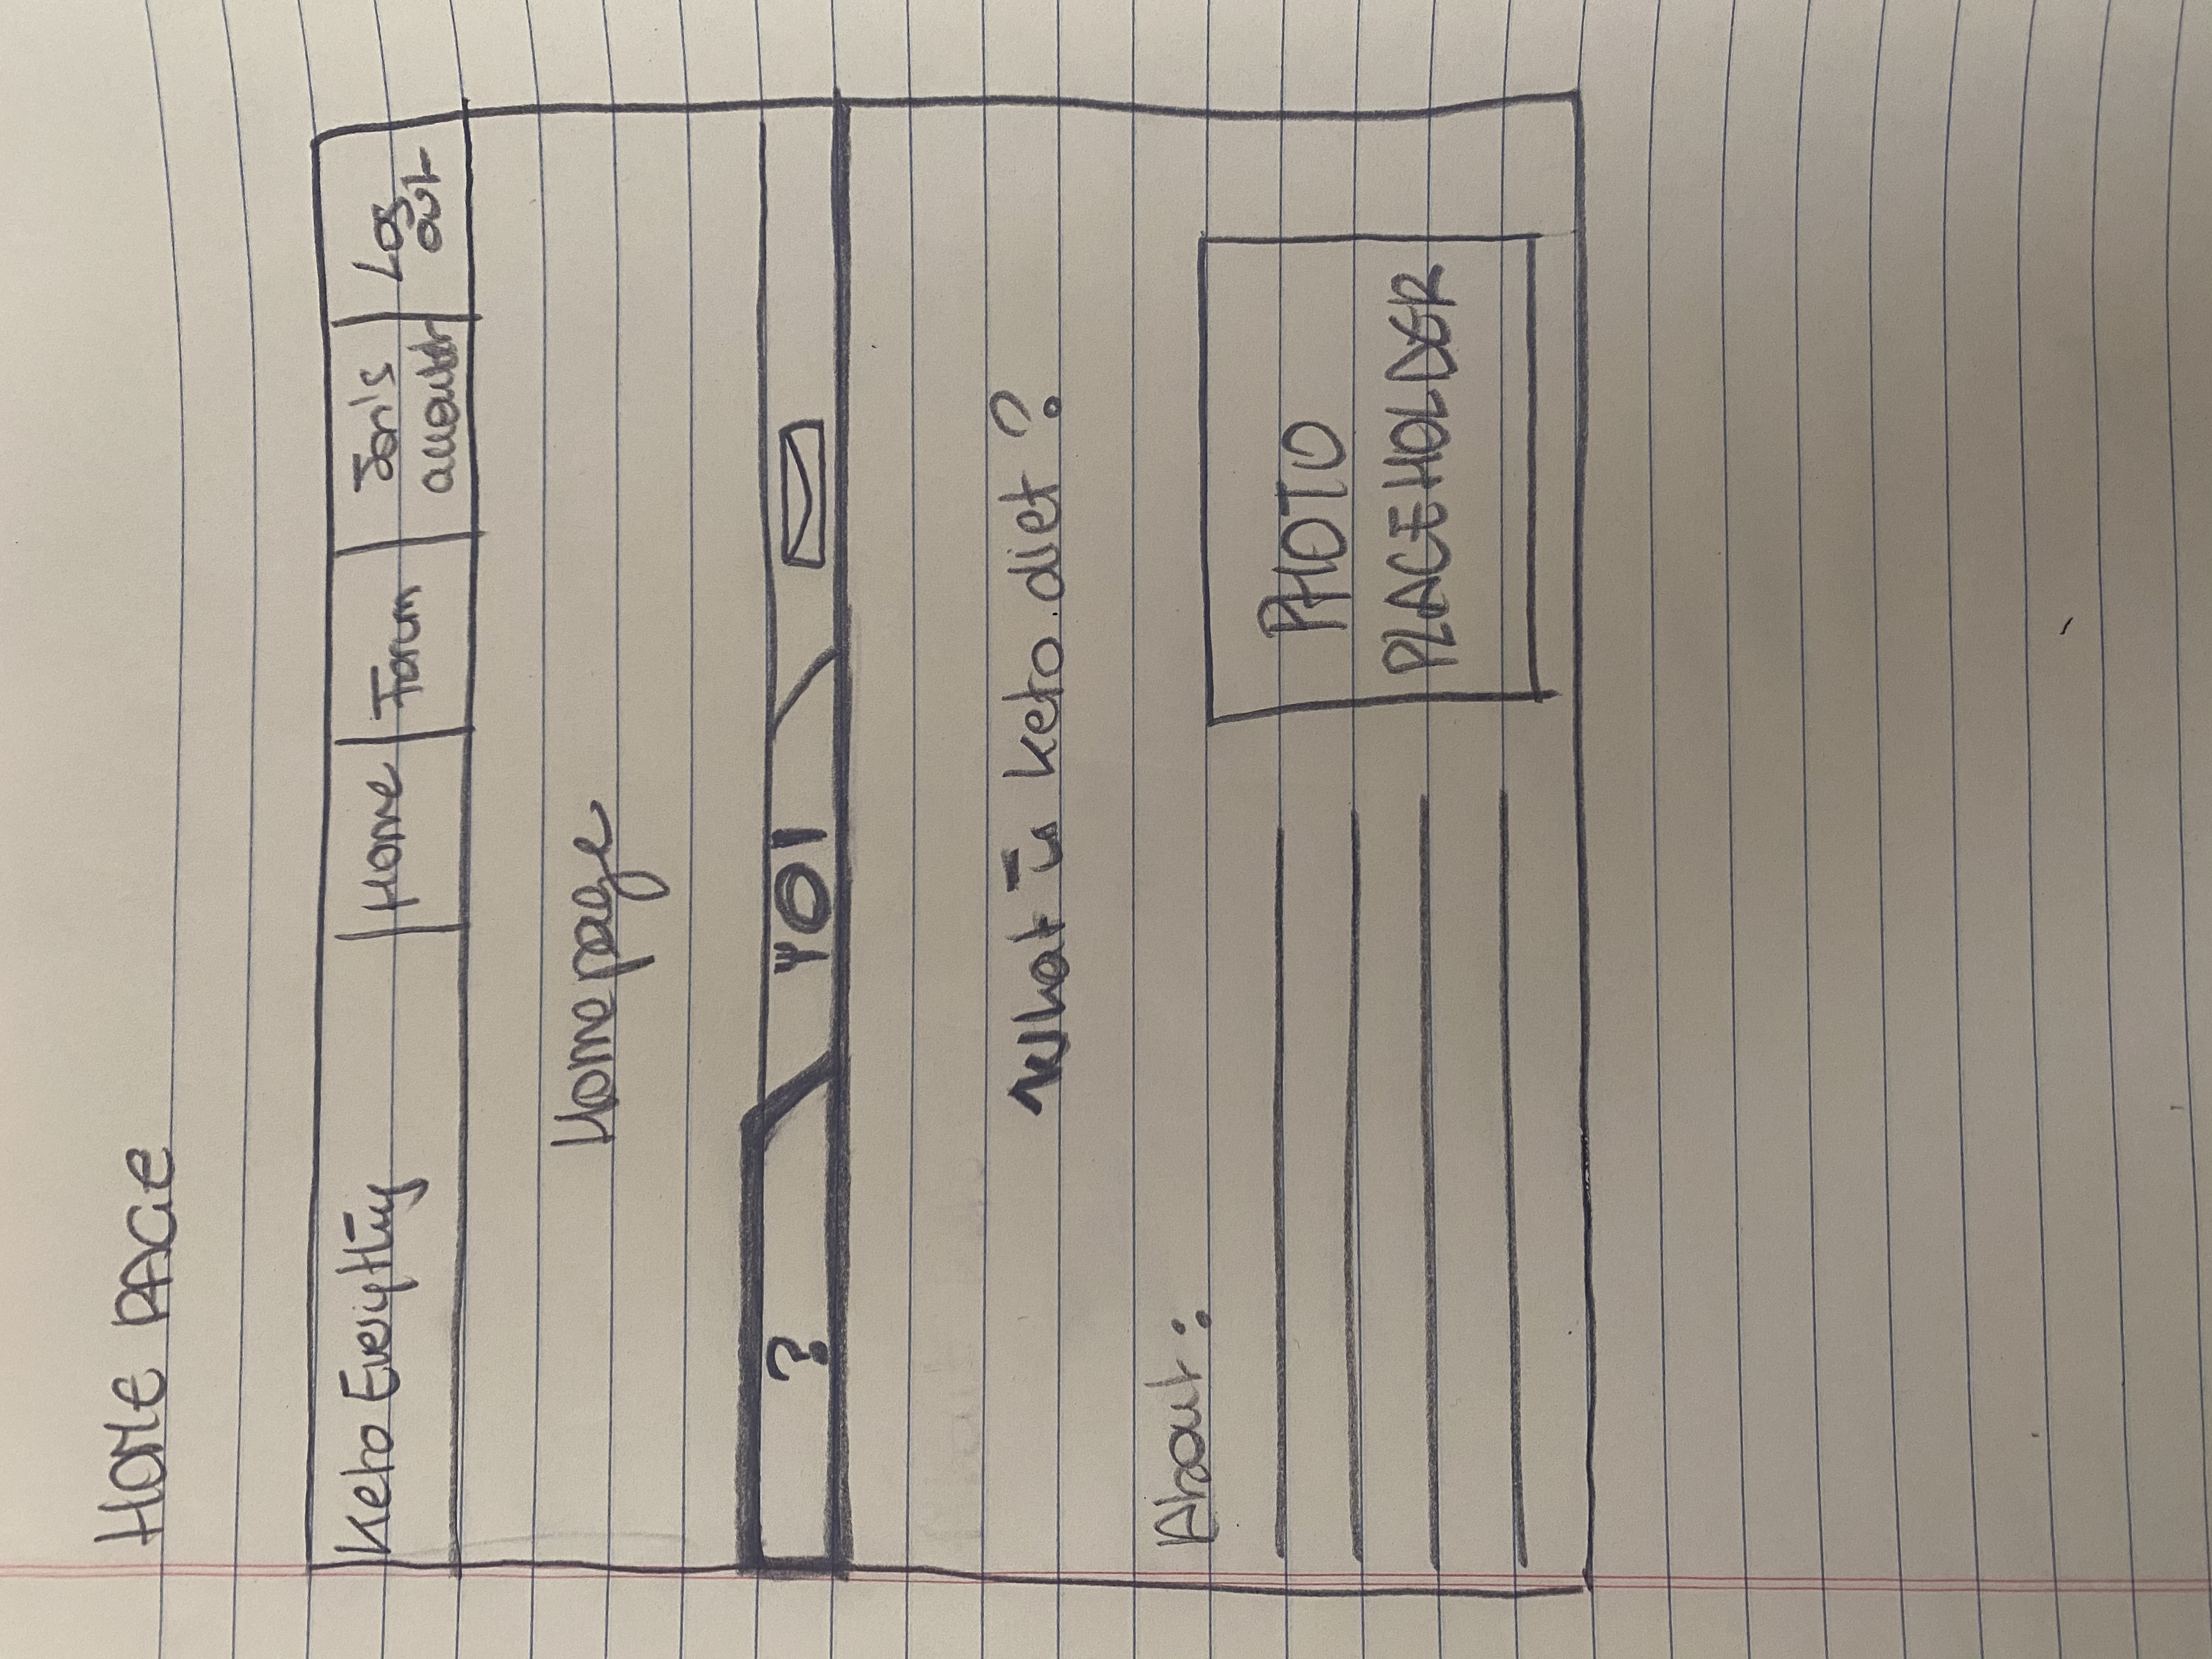 HOME PAGE
Keto Everything
Home
Forum
Jon's
account
Log
out
Homepage
?
What is keto diet?
About:
PHOTO
PLACEHOLDER